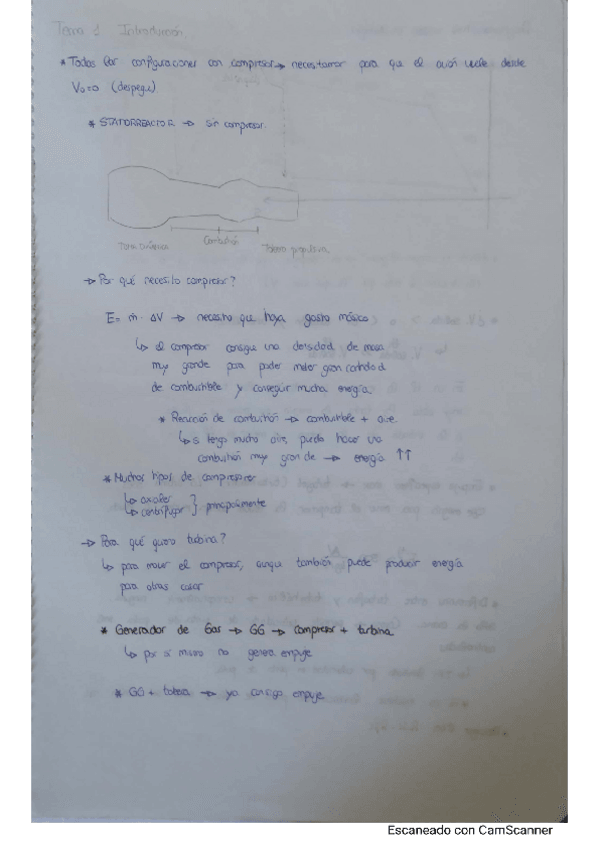 Tema 1 Introducción
* Todas las configuraciones con compresor → necesitamos para que el avión vuele desde
V₀=0 (despegue)
* ESTATORREACTOR → sin compresor.
Toma dinámica
Combustión
Tobera propulsiva
→ Por qué necesito compresor?
E = ṁ · ΔV → necesito que haya gasto másico
↳ el compresor consigue una densidad de masa
muy grande para poder meter gran cantidad
de combustible y conseguir mucha energía.
* Reacción de combustión → combustible + aire.
↳ si tengo mucho aire, puedo hacer una
combustión muy grande → energía ↑↑
* Muchos tipos de compresores
↳ axiales
↳ centrífugos } principalmente
→ Para qué quiero turbina?
↳ para mover el compresor, aunque también puede producir energía
para otras cosas
* Generador de Gas → GG → compresor + turbina
↳ por sí mismo no genera empuje
* GG + tobera → ya consigo empuje
Escaneado con CamScanner